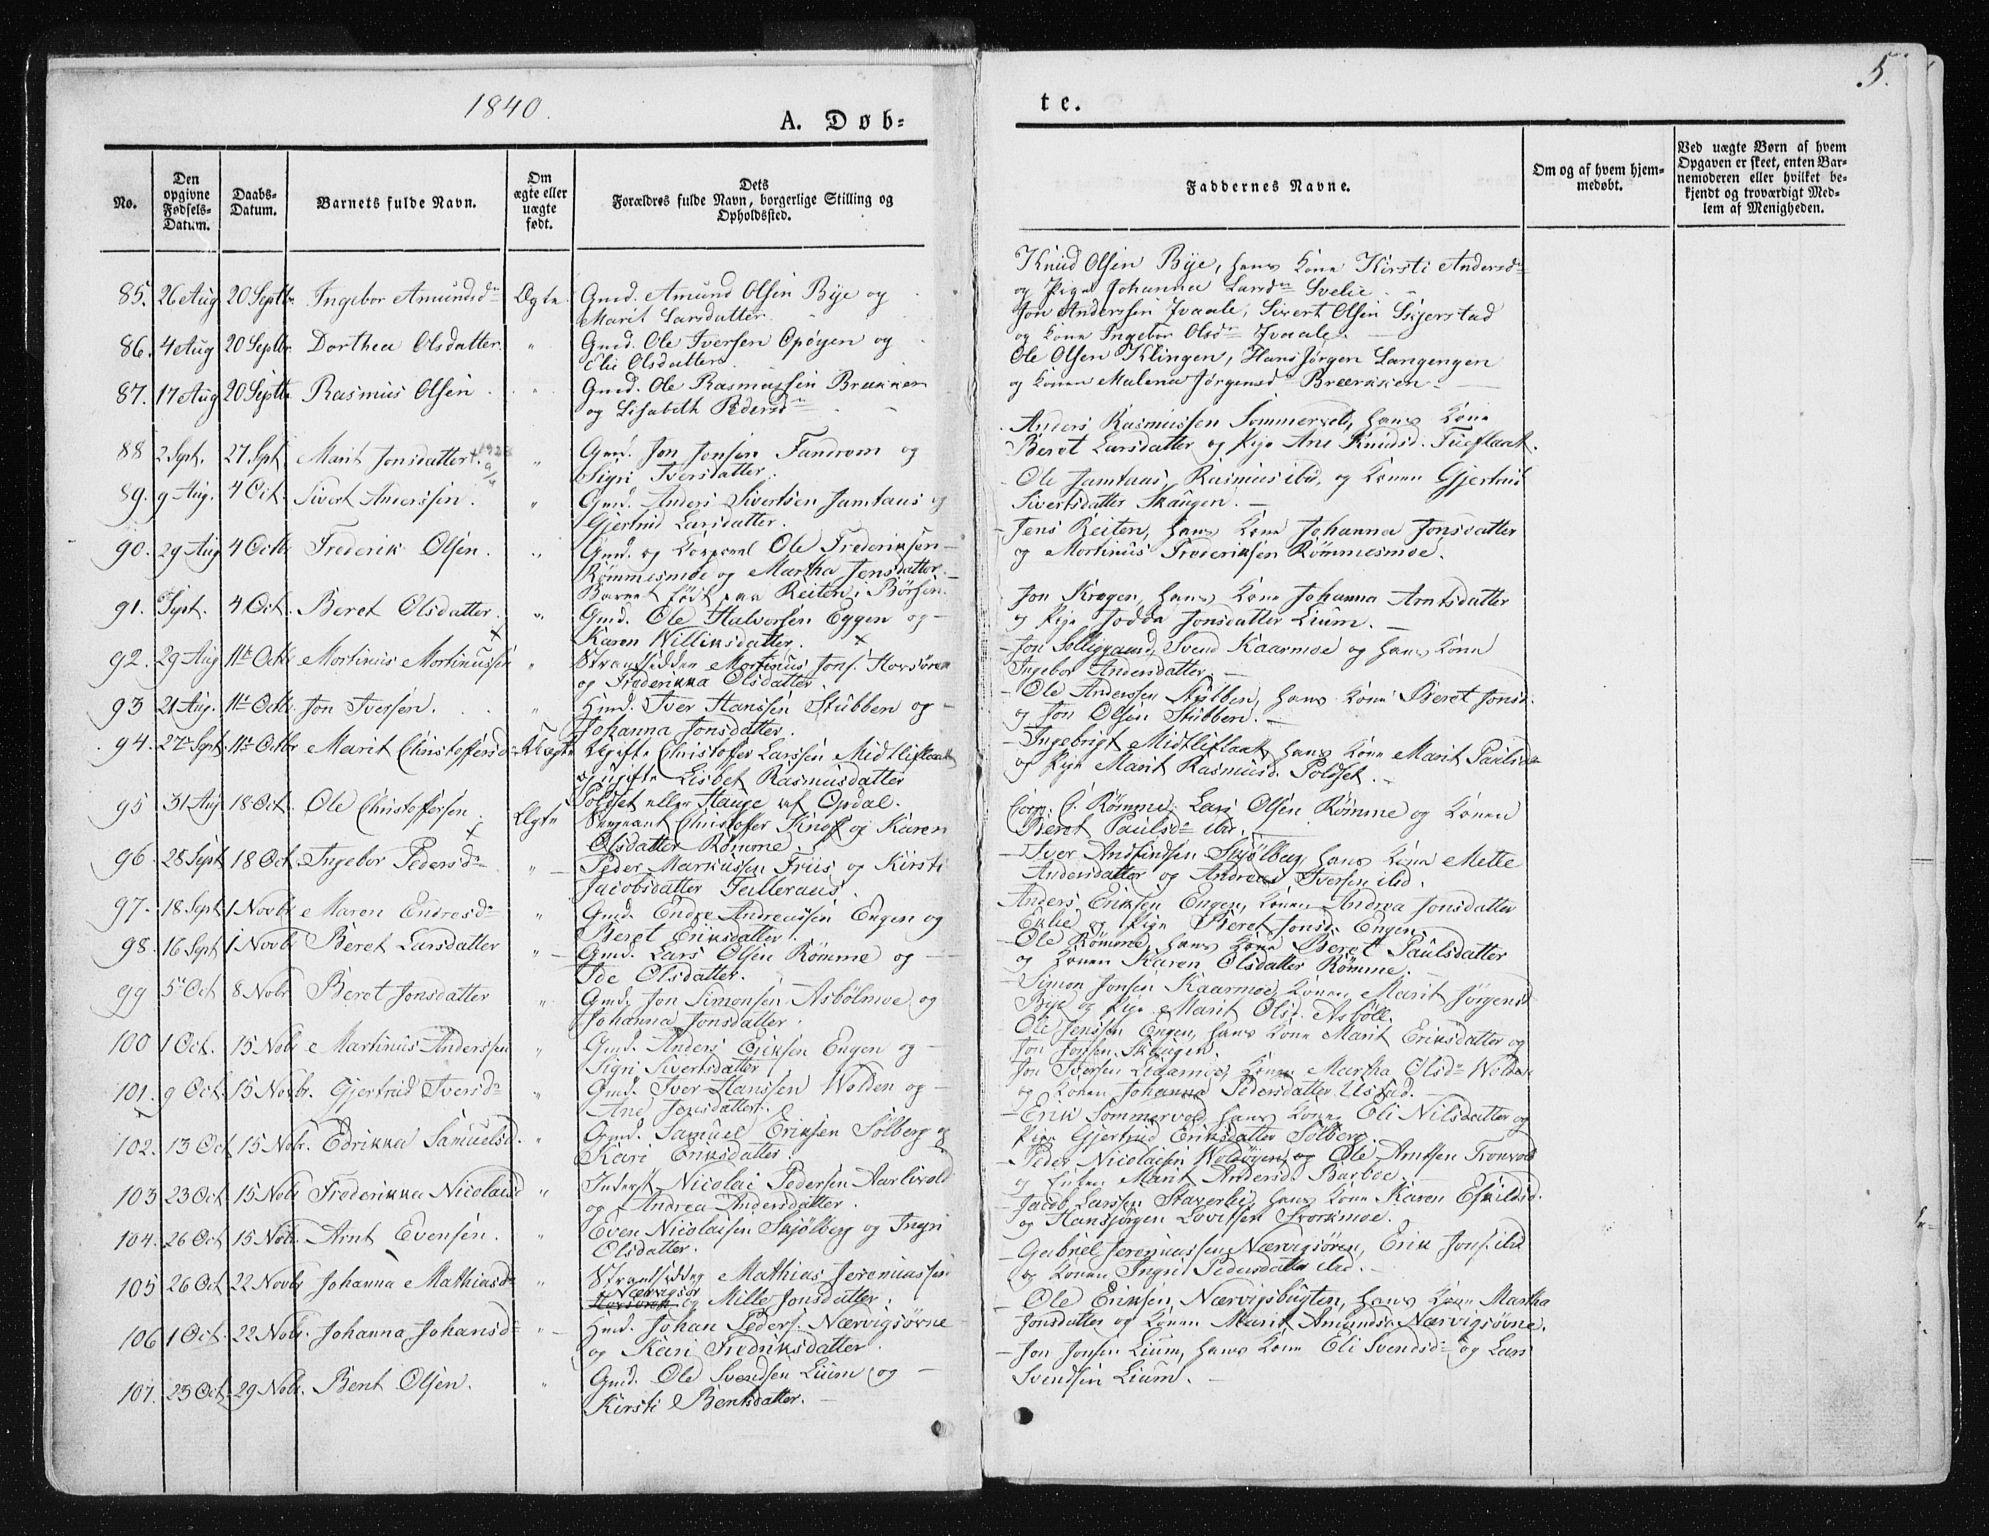 1840.
A. Døb-
te.
5.
No.
Den opgivne Fødsels-Datum.
Daabs-Datum.
Barnets fulde Navn.
Om ægte eller uægte født.
Dets Forældres fulde Navn, borgerlige Stilling og Opholdssted.
Faddernes Navne.
Om og af hvem hjem-medøbt.
Ved uægte Børn af hvem Opgaven er skeet, enten Bar-nemoderen eller hvilket be-kjendt og troværdigt Med-lem af Menigheden.
85. 26 Aug 20 Septbr. Ingebor Amundsdr Ægte. Gmd. Amund Olsen Bye og
Marit Larsdatter.
Knud Olsen Bye, hans Kone Kirsti Andersdr
og Pige Johanna Larsdr Svelie.
86. 4 Aug 20 Septbr. Dorthea Olsdatter. " Gmd. Ole Iversen Opøyen og
Eli Olsdatter
Jon Anderssen Ivaale, Sivert Olsen
og Kone Ingebor Olsdr Ivaale.
87. 17 Aug 20 Septbr Rasmus Olsen. " Gmd. Ole Rasmussen Brækken
og Lisabeth Pedersdr
Ole Olsen Klingen, Hans Jørgen Langengen
og Konen Malena Jørgensdr
88 2 Spt. 27 Spt. Marit Jonsdatter " Gmd. Jon Jonsen Fandrem og
Sigri Iversdatter.
Anders Rasmussen hans Kone
Beret Larsdatter og Pige Ane Knudsd.
89. 9 Aug. 4 Oct. Sivert Anderssen. " Gmd. Anders Sivertsen Jamtaas og
Gjertrud Larsdatter.
Ole Jamtaas, Rasmus ibd, og Konen Gjertrud
Sivertsdatter Skaugen.
90. 29 Aug 4 Octbr Frederik Olsen. " Gmd. og Corporal Ole Frederiksen
Rømmesmoe og Martha Jensdatter.
Barnet født paa Reiten i Børsen.
Jens Reiten, hans Kone Johanna Jonsdatter
og Mortinus Frederiksen Rømmesmoe.
91. Sept. 4 Oct. Beret Olsdatter. " Gmd. Ole Halvorsen Eggen og
Karen Williksdatter.
Jon Kregen, hans Kone Johanna Arntsdatter
og Pige Jonsdatter Lium.
92. 29 Aug 11te Octbr Mortinus Mortinussen " Strandsidder Mortinus Jons.
og Frederikka Olsdatter
Jon Svend Kaarmoe og hans Kone
Ingebor Andersdatter.
93 21 Aug. 11te Octbr. Jon Iversen. " Hmd. Iver Hanssen Stubben og
Johanna Jonsdatter.
Ole Anderssen Stubben, hans Kone Beret Jonsd.
og Jon Olsen Stubben.
94. 27de Sept. 11te Octbr Marit Christoffersd. Uægte Ugifte Christofer Larssen Midtliflaat
og ugifte Lisbet Rasmusdatter
Poldset eller Hauge af Opdal.
Ingebrigt Midtliflaat, hans Kone Marit Paulsdr
og Pige Marit Rasmusd. Poldset.
95 31 Aug 18 Oct. Ole Christoffersen. Ægte Sergeant Christofer Knoff og Karen
Olsdatter Rømme.
Corp. C. Rømme, Lars Olsen Rømme og Konen
Beret Paulsdr ibd.
96. 28 Sept 18 Oct. Ingebor Pedersdr " Peder Markussen Friis og Kirsti
Jacobsdatter
Iver Andfindsen Skjølberg, hans Kone Mette
Andersdatter og Andreas Iversen ibd.
97. 18 Sept 1 Novbr Maren Endresdr " Gmd. Endre Andreassen Engen og
Beret Eriksdatter.
Anders Eriksen Engen, Konen Andrea Jonsdatter
og Pige Beret Jonsd. Engen.
98. 16 Sept 1 Novbr Beret Larsdatter " Gmd. Lars Olsen Rømme og
Ide Olsdatter.
Ole Rømme, hans Kone Beret Paulsdatter
og Konen Karen Olsdatter Rømme.
99 5 Oct 8 Nobr Beret Jonsdatter " Gmd. Jon Simonsen Asbølmoe og
Johanna Jonsdatter.
Simon Jonsen Kaarmoe, Konen Marit Jørgensd
Bye og Pige Marit Olsd. Asbøll.
100 1 Oct. 15 Nobr Martinus Anderssen " Gmd. Anders Eriksen Engen og
Sigri Sivertsdatter
Ole Jenssen Engen, hans Kone Marit Eriksdatter og
Jon Jonsen Skaugen.
101. 9 Oct. 15 Novbr. Gjertrud Iversdr " Gmd. Iver Hanssen Wolden og
Ane Jonsdatter.
Jon Iversen Konen Martha Olsdr Wolden
og Konen Johanna Pedersdatter Ustad.
102. 13 Oct 15 Nobr. Edrikka Samuelsd. " Gmd. Samuel Eriksen Solberg og
Kari Eriksdatter.
Erik Sommervold, hans Kone Eli Nilsdatter og
Pige Gjertrud Eriksdatter Solberg.
103 23 Oct 15 Nobr Frederikka Nicolaisd " Inderst Nicolai Pedersen Aarlivold
og Andrea Andersdatter.
Peder Nicolaisen og Ole Arntsen Tronvold
og Enken Marit Andersd. Barboe.
104. 26 Oct 15 Nobr. Arnt Evensen. " Even Nicolaisen Skjølberg og Ingri
Olsdatter.
Jacob Larssen Staverlie, hans Kone Karen Eskildsd.
og Hansjørgen Lovitsen Svorkmoe.
105 26 Oct 22 Novbr Johanna Mathiasdr " Strandsidder Mathias Jeremiassen
Nærvigsør
og Mille Jonsdatter.
Gabriel Jeremiassen Nærvigsøren, Erik Jons. ibd
og Konen Ingri Pedersdatter ibd.
106 1 Oct. 22 Nobr. Johanna Johansdr " Hmd. Johan Peders. Nærvigsøvne
og Kari Fredriksdatter.
Ole Eriksen Nærvigsbugten, hans Kone Martha
Jonsdatter og Konen Marit Amundsd. Nærvigsøvne.
107. 23 Oct. 29 Nobr. Berit Olsen. " Gmd. Ole Svendsen Lium og
Kirsti Bentsdatter.
Jon Jonsen Lium, hans Kone Eli Svendsdr og Lars
Svendsen Lium.